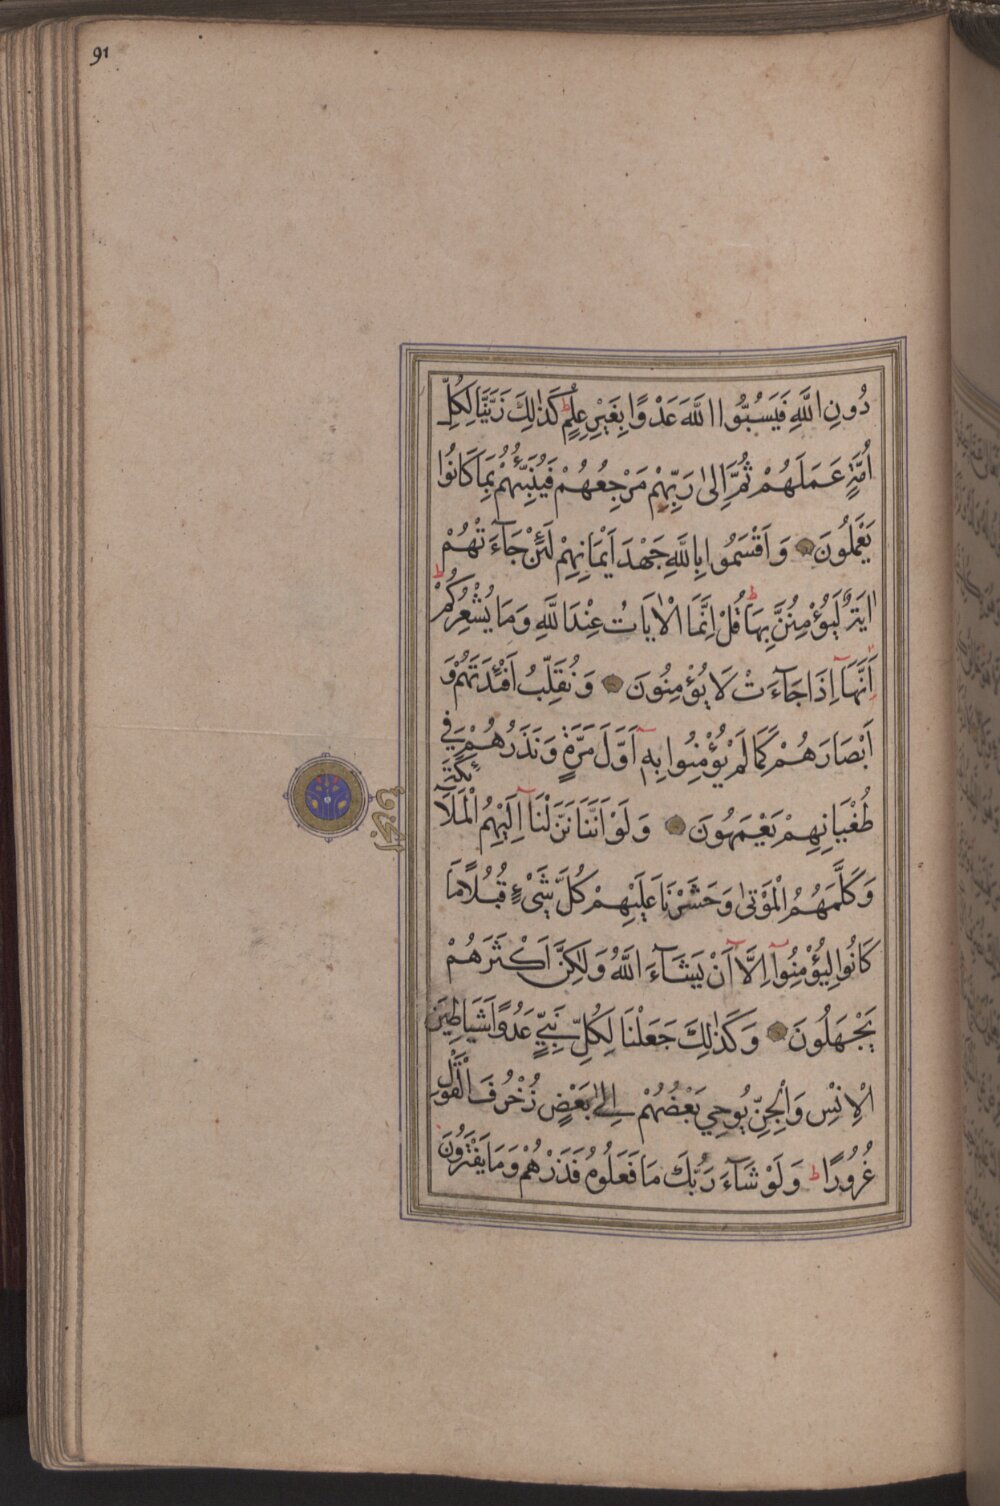 91
دُونِ اللَّهِ فَيَسُبُّوا اللَّهَ عَدْوًا بِغَيْرِ عِلْمٍ ط كَذٰلِكَ زَيَّنَّا لِكُلِّ
اُمَّةٍ عَمَلَهُمْ ثُمَّ اِلٰى رَبِّهِمْ مَرْجِعُهُمْ فَيُنَبِّئُهُمْ بِمَا كَانُوا
يَعْمَلُونَ وَاَقْسَمُوا بِاللَّهِ جَهْدَ اَيْمَانِهِمْ لَئِنْ جَآءَتْهُمْ
اٰيَةٌ لَيُؤْمِنُنَّ بِهَا ط قُلْ اِنَّمَا الْاٰيَاتُ عِنْدَ اللَّهِ وَمَا يُشْعِرُكُمْ ط
اَنَّهَآ اِذَا جَآءَتْ لَا يُؤْمِنُونَ وَنُقَلِّبُ اَفْئِدَتَهُمْ وَ
اَبْصَارَهُمْ كَمَا لَمْ يُؤْمِنُوا بِهٖٓ اَوَّلَ مَرَّةٍ وَنَذَرُهُمْ فِي
طُغْيَانِهِمْ يَعْمَهُونَ وَلَوْ اَنَّنَا نَزَّلْنَآ اِلَيْهِمُ الْمَلَآئِكَةَ
الجزء
وَكَلَّمَهُمُ الْمَوْتٰى وَحَشَرْنَا عَلَيْهِمْ كُلَّ شَيْءٍ قُبُلًا مَا
كَانُوا لِيُؤْمِنُوآ اِلَّآ اَنْ يَشَآءَ اللَّهُ وَلٰكِنَّ اَكْثَرَهُمْ
يَجْهَلُونَ وَكَذٰلِكَ جَعَلْنَا لِكُلِّ نَبِيٍّ عَدُوًّا شَيَاطِينَ
الْاِنْسِ وَالْجِنِّ يُوحِي بَعْضُهُمْ اِلٰى بَعْضٍ زُخْرُفَ الْقَوْلِ
غُرُورًا ط وَلَوْ شَآءَ رَبُّكَ مَا فَعَلُوهُ فَذَرْهُمْ وَمَا يَفْتَرُونَ